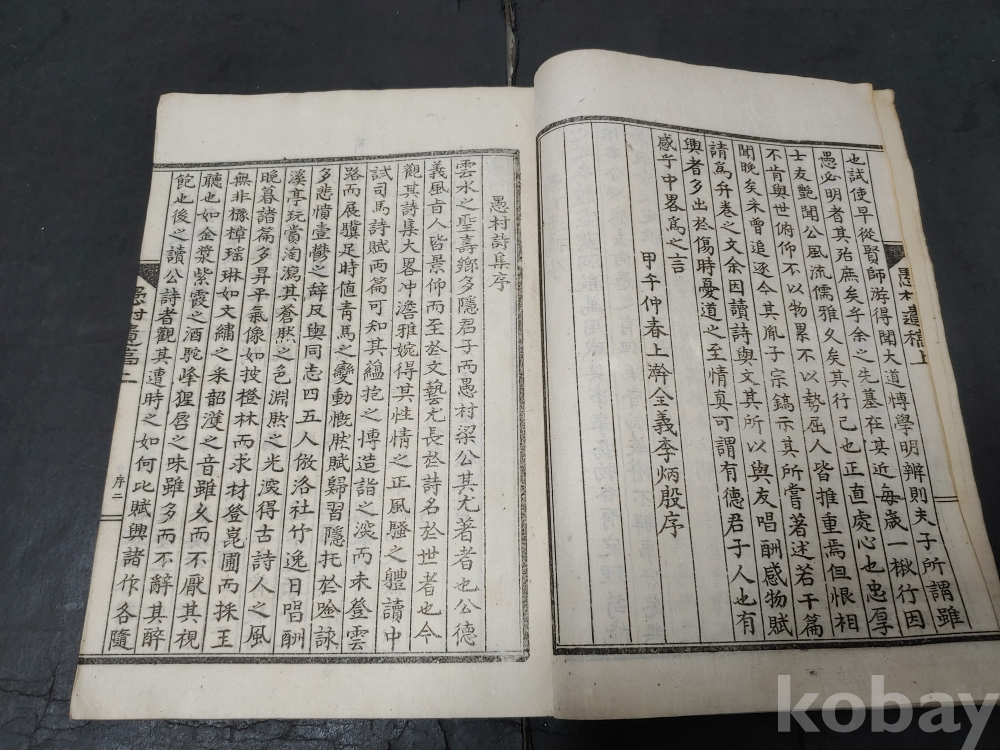 愚村遺稿上
也試使早從賢師游得聞大道博學明辨則夫子所謂雖
愚必明者其殆庶矣乎余之先墓在其近每歲一楸行因
士友艶聞公風流儒雅久矣其行己也正直處心也忠厚
不肯與世俯仰不以物累不以勢屈人皆推重焉但恨相
聞晩矣未曾追逐今其胤子宗鎬示其所嘗著述若干篇
請爲弁卷之文余因讀詩與文其所以與友唱酬感物賦
興者多出於傷時憂道之至情眞可謂有德君子人也有
感于中畧爲之言
甲午仲春上澣全義李炳殷序
愚村詩集序
雲水之聖壽鄕多隱君子而愚村梁公其尤著者也公德
義風旨人皆景仰而至於文藝尤長於詩名於世者也今
觀其詩集大畧冲澹雅婉得其性情之正風騷之體讀中
試司馬詩賦兩篇可知其蘊抱之博造詣之深而未登雲
路而展驥足時値靑馬之變動慨然賦歸習隱托於唫諫
多悲憤壹鬱之辭反與同志四五人倣洛社竹逸日唱酬
溪亭玩賞淘瀉其蒼然之色淵然之光深得古詩人之風
晩暮諸篇多昇平氣像如披橙林而求材登崑圃而採玉
無非櫞樟瑤琳如文繡之釆韶濩之音雖久而不厭其視
聽也如金漿紫霞之酒駝峰猩唇之味雖多而不辭其醉
飽也後之讀公詩者觀其遭時之如何比賦興諸作各隨
愚村遺稿上
序二
kobay